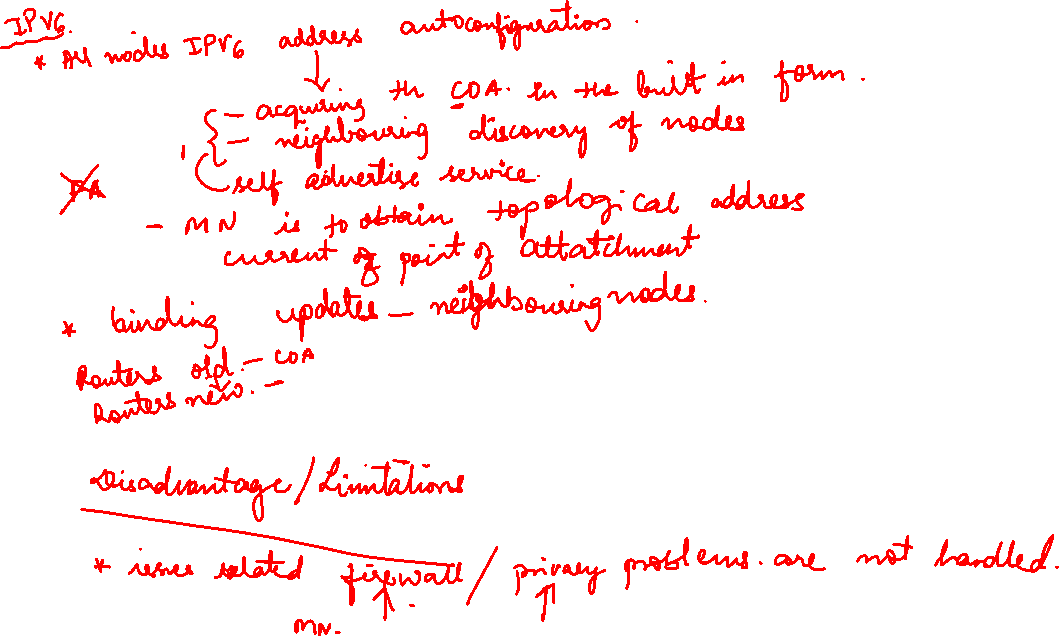 IPV6.
* All nodes IPV6 address autoconfiguration.
- acquiring th COA. in the built in form.
- neighbouring discovery of nodes
self advertise service.
FA
- MN is to obtain topological address
current of point of attatchment
* binding updates - neighbouring nodes.
Routers old. - COA
Routers new. -
Disadvantage/Limitations
* issues related firewall / privacy problems. are not handled.
MN.